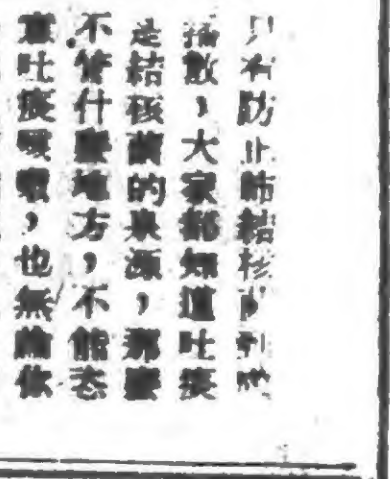 只有防止肺結核菌到處
播散，大家都知道吐痰
是結核菌的來源，那麼
不管什麼地方，不能恣
意吐痰咳嗽，也無論你